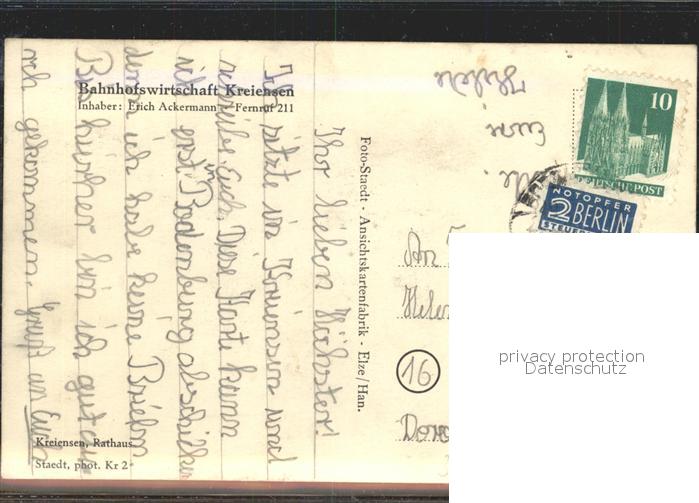 Bahnhofswirtschaft Kreiensen
Inhaber: Erich Ackermann - Fernruf 211
Ihr lieben
Ich sitze in Kreiensen und
schreibe Euch. Diese Karte kann
ich erst in Bodenburg abschicken
denn ich habe keine Briefm
Bis hierher bin ich gut an
gekommen. Gruß an Euch
Kreiensen, Rathaus
Staedt, phot. Kr 2
Foto-Staedt - Ansichtskartenfabrik - Elze/Han.
Eure
10
DEUTSCHE POST
NOTOPFER
2 BERLIN
STEUER
An
16
privacy protection
Datenschutz